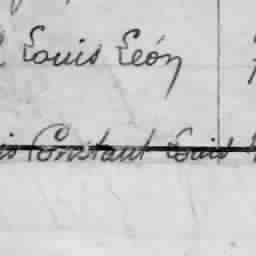 Louis León
Constant Louis